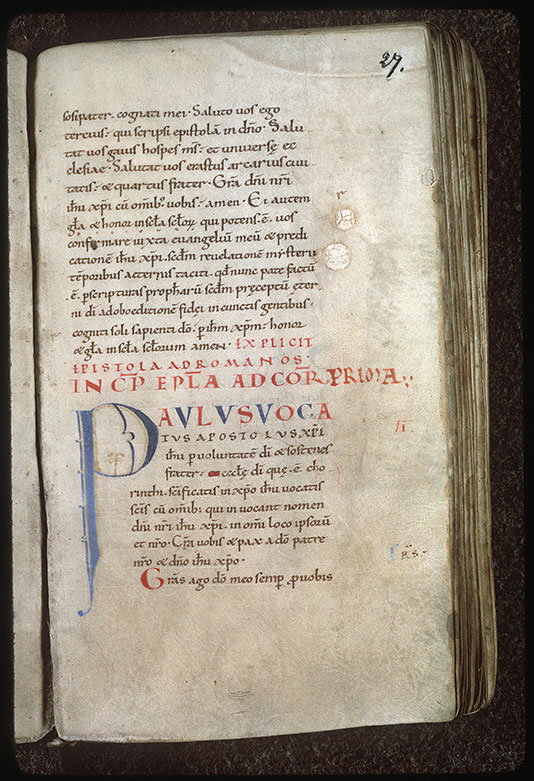 27.
sosipater· cognati mei· Saluto vos ego
tercius· qui scripsi epistolā in dño· Salu
tat vos gaius hospes ms̄· et universę ec
clesiae· Salutat vos erastus arcarius civi
tatis· & quartus frater· Gr̄a dn̄i nr̄i
ihū xp̄i cū omīb; vobis· amen· Ei autem
gl̄a & honor in sc̄la sc̄lor̄ qui potens· ē· vos
confirmare iuxta euangeliū meū & predi
cationē ihū xp̄i· scdm̄ reuelationē misterii
tēporibus aeternis taciti· qd̄ nunc pate factū
·ē· p scripturas prophar̄ū scdm̄ pręceptū eter
ni di ad oboeditionē fidei in cunctis gentibus·
cogniti soli sapienti dō· p ihm̄ xp̄m· honor
& gl̄a in sc̄la sc̄lorum amen· EXPLICIT
EPISTOLA AD ROMANOS·
INCP̄ EPL̄A AD COR̄ PRIMA·
PAULUS VOCA
TUS APOSTOLUS XP̄I
ihū p voluntatē dī & sostenes
frater· ecclę dī quę· ē· cho
rinthi· sc̄ificatis in xp̄o ihū vocatis
sc̄is cū omīb; qui in vocant nomen
dn̄i nr̄i ihū xp̄i· in om̄i loco ipsorū
et nr̄o· Gr̄a vobis & pax a dō patre
nr̄o & dn̄o ihū xp̄o·
Gr̄as ago dō meo semp̄ p vobis